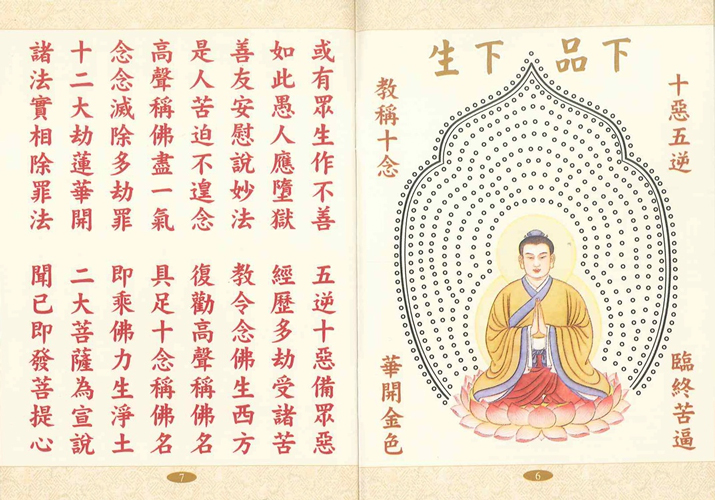 下品下生
十惡五逆 臨終苦逼
教稱十念 華開金色
6
或有眾生作不善 五逆十惡備眾惡
如此愚人應墮獄 經歷多劫受諸苦
善友安慰說妙法 教令念佛生西方
是人苦迫不遑念 復勸高聲稱佛名
高聲稱佛盡一氣 具足十念稱佛名
念念滅除多劫罪 即乘佛力生淨土
十二大劫蓮華開 二大菩薩為宣說
諸法實相除罪法 聞已即發菩提心
7